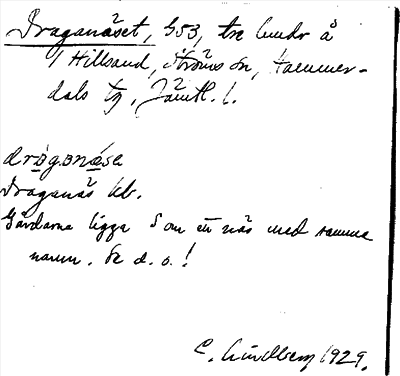 Draganäset, 453, tre lundr å
1 Hillsand, Ströms sn, Hammer-
dals tg, Jämtl. l.
drógonǽsə
Draganäs kb.
Gårdarna ligga S om ett näs med samma
namn. Se d. o.!
C. Lindberg 1929.